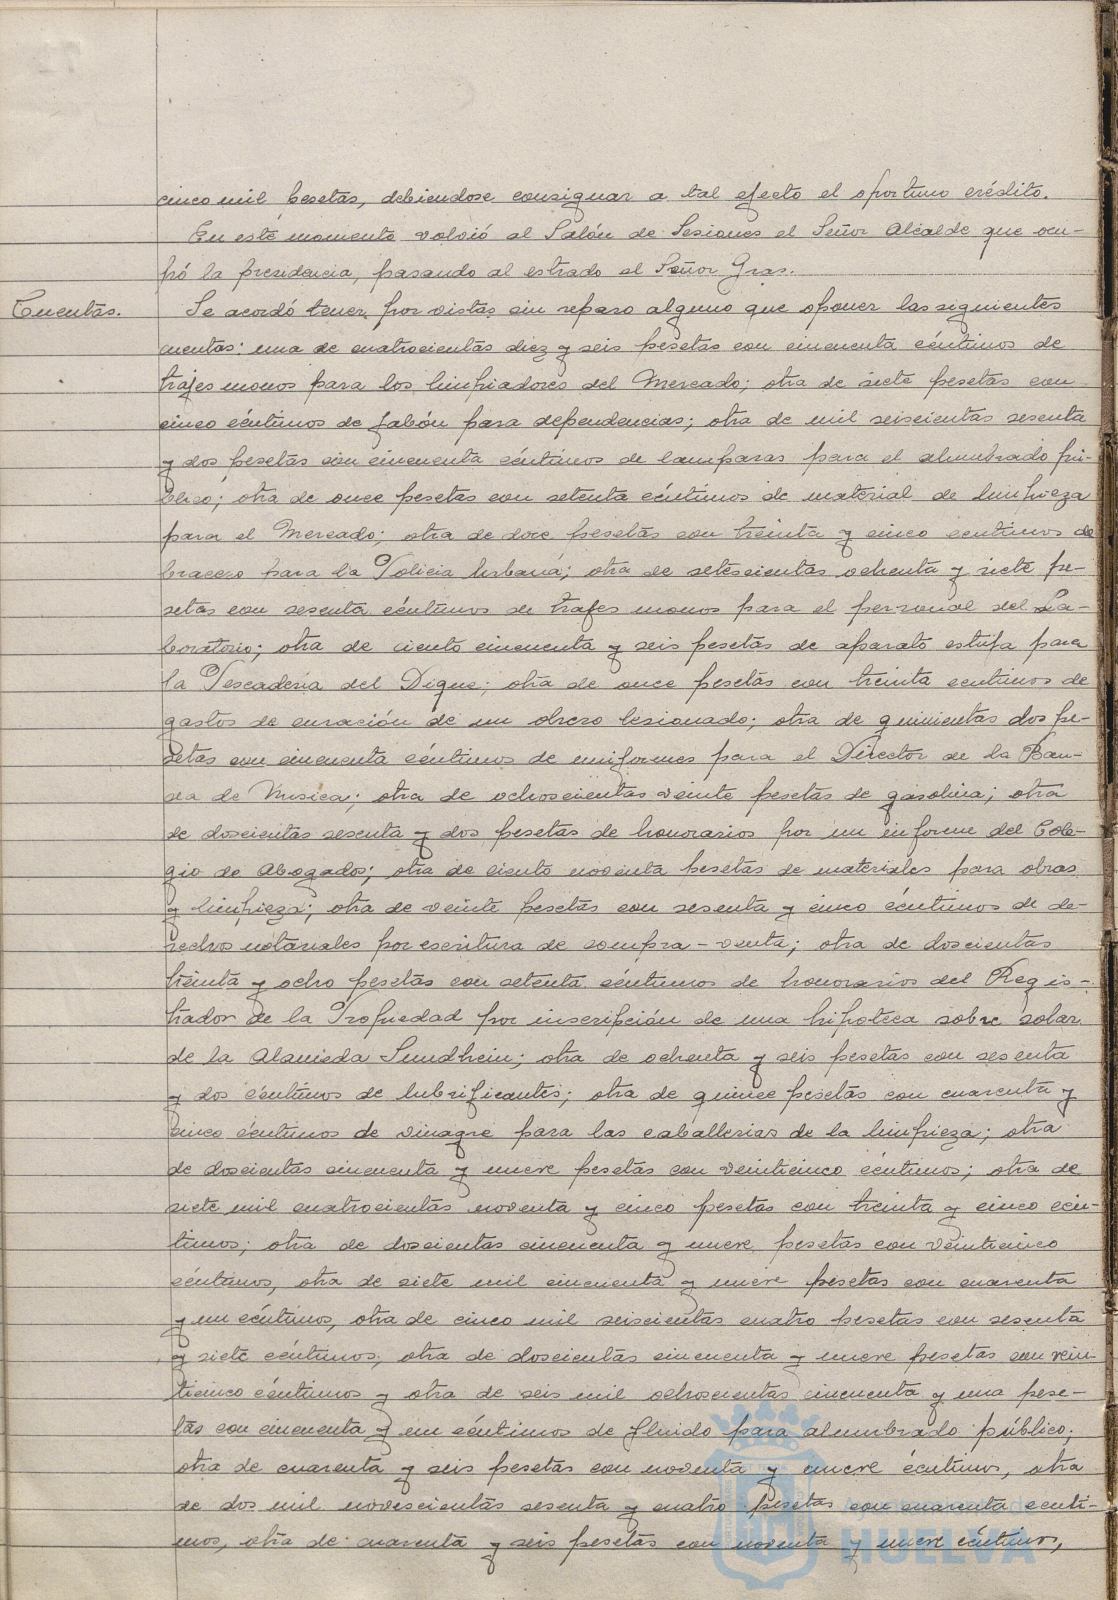 cinco mil pesetas, debiendose consignar a tal efecto el oportuno crédito.
En este momento volvió al Salón de Sesiones el Señor Alcalde que ocu-
pó la presidencia, pasando al estrado el Señor Gras.
Cuentas.
Se acordó tener por vistas sin reparo alguno que oponer las siguientes
cuentas: una de cuatrocientas diez y seis pesetas con cincuenta céntimos de
trajes monos para los limpiadores del Mercado; otra de siete pesetas con
cinco céntimos de jabón para dependencias; otra de mil seiscientas sesenta
y dos pesetas con cincuenta céntimos de lamparas para el alumbrado pú-
blico; otra de once pesetas con setenta céntimos de material de limpieza
para el Mercado; otra de doce pesetas con treinta y cinco centimos de
bracero para la Policia Urbana; otra de setescientas ochenta y siete pe-
setas con sesenta céntimos de trajes monos para el personal del La-
boratorio; otra de ciento cincuenta y seis pesetas de aparato estufa para
la Pescaderia del Dique; otra de once pesetas con treinta centimos de
gastos de curación de un obrero lesionado; otra de quinientas dos pe-
setas con cincuenta céntimos de uniformes para el Director de la Ban-
da de Musica; otra de ochoscientas veinte pesetas de gasolina; otra
de doscientas sesenta y dos pesetas de honorarios por un informe del Cole-
gio de Abogados; otra de ciento noventa pesetas de materiales para obras
y limpieza; otra de veinte pesetas con sesenta y cinco céntimos de de-
rechos notariales por escritura de compra-venta; otra de doscientas
treinta y ocho pesetas con setenta céntimos de honorarios del Regis-
trador de la Propiedad por inscripción de una hipoteca sobre solar
de la Alameda Sundhein; otra de ochenta y seis pesetas con sesenta
y dos céntimos de lubrificantes; otra de quince pesetas con cuarenta y
cinco céntimos de vinagre para las caballerias de la limpieza; otra
de doscientas cincuenta y nueve pesetas con veinticinco céntimos; otra de
siete mil cuatrocientas noventa y cinco pesetas con treinta y cinco cén-
timos; otra de doscientas cincuenta y nueve pesetas con veinticinco
céntimos, otra de siete mil cincuenta y nueve pesetas con cuarenta
y un céntimos, otra de cinco mil seiscientas cuatro pesetas con sesenta
y siete céntimos, otra de doscientas cincuenta y nueve pesetas con vein-
ticinco céntimos y otra de seis mil ochoscientas cincuenta y una pese-
tas con cincuenta y un céntimos de fluido para alumbrado público;
otra de cuarenta y seis pesetas con noventa y nueve céntimos, otra
de dos mil novescientas sesenta y cuatro pesetas con cuarenta centi-
mos, otra de cuarenta y seis pesetas con noventa y nueve céntimos,
Ayuntamiento de
HUELVA